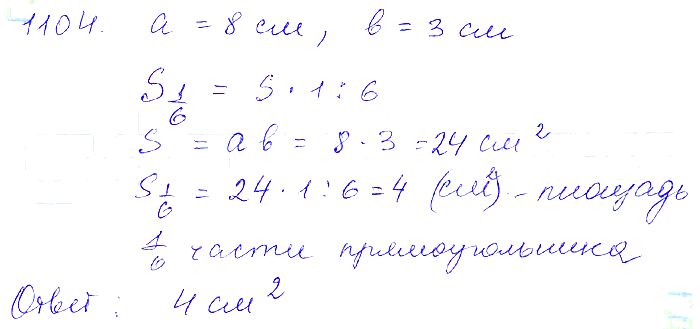 1104. a = 8 см, в = 3 см
S 1/6 = S · 1 : 6
S = ав = 8 · 3 = 24 см²
S 1/6 = 24 · 1 : 6 = 4 (см²) – площадь
1/6 части прямоугольника
Ответ: 4 см²